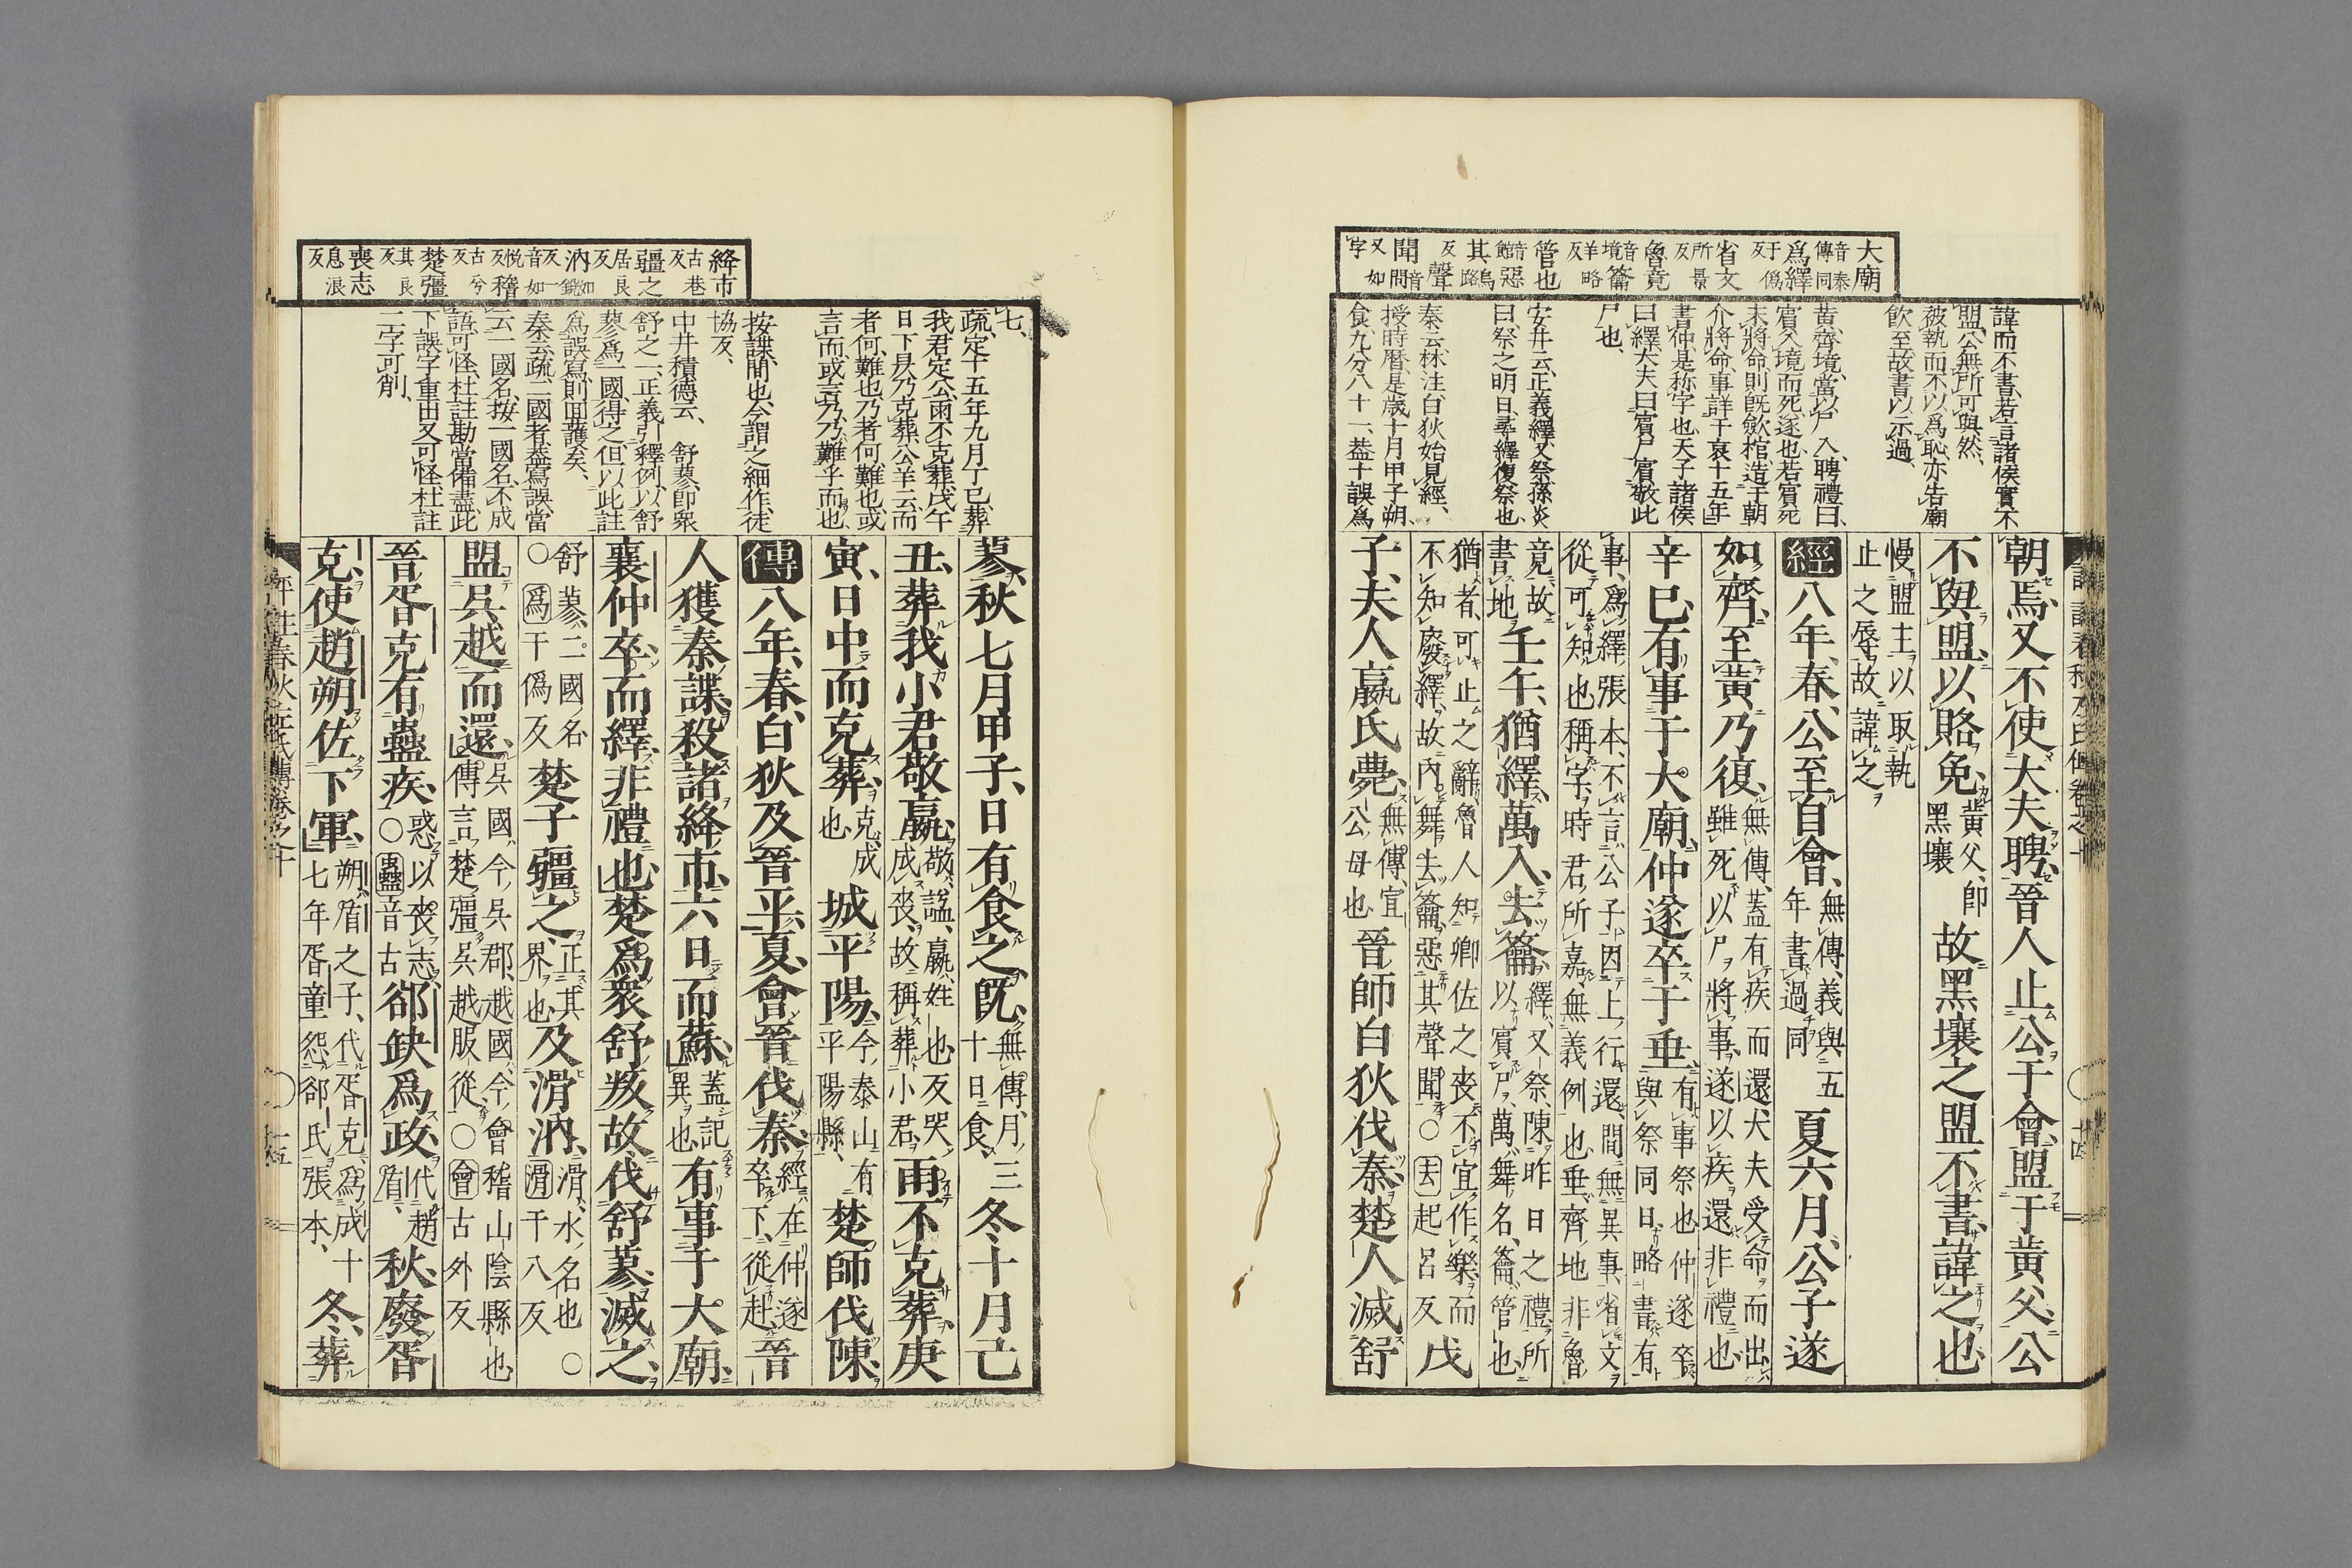 大廟
音泰
傳同
爲繹
于僞
反
省文
所景
反
魯竟
音
境
籥
羊略
反
管也
音
館
惡
其
烏路
反
聲
聞
音問
又如
字
諱而不書、若言諸侯實不
盟、公無所可與然、
被執而不以爲恥、亦告廟
飲至、故書以示過、
黃、齊境、當以尸入、聘禮曰、
賓入境而死、遂也、若賓死
未將命、則既斂棺、造于朝
介將命、事詳于哀十五年
書仲、是称字也、天子諸侯
曰繹、大夫曰賓尸、賓敬此
尸也、
安井云、正義、繹又祭、孫炎
曰、祭之明日、尋繹復祭也、
秦云、林注、白狄始見經、
授時曆、是歲十月甲子朔、
食九分八十一、蓋十誤爲
朝焉、又不使大夫聘、晉人止公于會、盟于黃父、公
不與盟、以賂免、
黃父、即
黑壤
故黑壤之盟不書、諱之也、
慢盟主以取執
止之辱、故諱之
經八年、春、公至自會、
無傳、義與五
年書過同
夏六月、公子遂
如齊、至黃乃復、
無傳、蓋有疾而還、大夫受命而出、
雖死、以尸將事、遂以疾還、非禮也、
辛巳、有事于大廟、仲遂卒于垂、
有事、祭也、仲遂卒
與祭同日、略書有
事、爲繹張本、不言公子、因上行還、間無異事、省文
從可知也、稱字、時君所嘉、無義例也、垂、齊地、非魯
竟、故
書地
壬午、猶繹、萬入、去籥、
繹、又祭、陳昨日之禮、所
以賓尸、萬、舞名、籥、管也、
猶者、可止之辭、魯人知卿佐之喪不宜作樂、而
不知廢繹、故內舞去籥、惡其聲聞○去起呂反
戊
子、夫人嬴氏薨、
無傳、宣
公母也、
晉師白狄伐秦、楚人滅舒
絳市
古巷
反
疆之
居良
反
汭
如銳
反一
音如
悅反
稽
古兮
反
楚彊
其良
反
喪志
息浪
反
七、
疏、定十五年九月丁巳、葬
我君定公、雨不克葬、戊午
日下昃、乃克葬、公羊云、而
者何、難也、乃者何、難也、或
言而、或言乃、乃難乎而也
按、諜、間也、今謂之細作、徒
協反、
中井積德云、舒蓼、即衆
舒之一、正義引釋例、以舒
蓼爲一國、得之、但以此註
爲誤寫、則回護矣、
秦云、疏、二國者、蓋寫誤、當
云一國名、按一國名、不成
語、可怪、杜註勘當備盡、此
下誤字重出、又可怪、杜註
二字可削、
蓼、秋七月甲子、日有食之、既、
無傳、月三
十日食、
冬十月己
丑、葬我小君敬嬴、
敬、謚、嬴、姓也、反哭
成喪、故稱葬小君、
雨不克葬、庚
寅、日中而克葬、
克、成
也、
城平陽、
今泰山有
平陽縣、
楚師伐陳、
傳八年、春、白狄及晉平、夏、會晉伐秦、
經在仲遂
卒下、從赴、
晉
人獲秦諜、殺諸絳市、六日而蘇、
蓋記
異也、
有事于大廟、
襄仲卒而繹、非禮也、楚爲衆舒叛故、伐舒蓼、滅之、
舒蓼、二國名
○爲于僞反
楚子疆之、
正其
界也、
及滑汭、
滑、水名也○
滑于八反
盟吳越而還、
吳國、今吳郡、越國、今會稽山陰縣也、
傳言楚彊、吳越服從、○會古外反
晉胥克有蠱疾、
惑以喪志、
○蠱音古
郤缺爲政、
代趙
盾、
秋、廢胥
克、使趙朔佐下軍、
朔、盾之子、代胥克、爲成十
七年胥童怨郤氏張本、
冬、葬